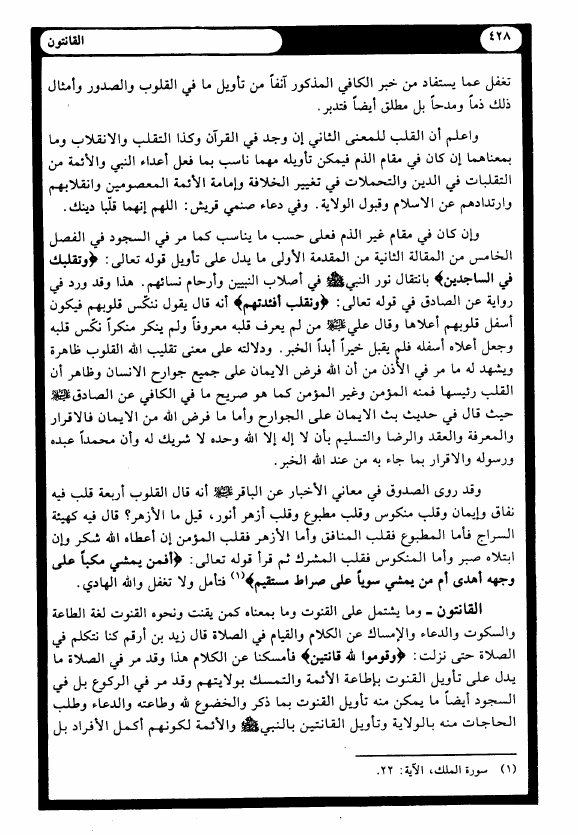 ٤٢٨
القانتون
تغفل عما يستفاد من خبر الكافي المذكور آنفاً من تأويل ما في القلوب والصدور وأمثال
ذلك ذماً ومدحاً بل مطلق أيضاً فتدبر.
واعلم أن القلب للمعنى الثاني إن وجد في القرآن وكذا التقلب والانقلاب وما
بمعناهما إن كان في مقام الذم فيمكن تأويله مهما ناسب بما فعل أعداء النبي والأئمة من
التقلبات في الدين والتحملات في تغيير الخلافة وإمامة الأئمة المعصومين وانقلابهم
وارتدادهم عن الاسلام وقبول الولاية. وفي دعاء صنمي قريش: اللهم إنهما قلّبا دينك.
وإن كان في مقام غير الذم فعلى حسب ما يناسب كما مر في السجود في الفصل
الخامس من المقالة الثانية من المقدمة الأولى ما يدل على تأويل قوله تعالى: ﴿وتقلبك
في الساجدين﴾ بانتقال نور النبي ﷺ في أصلاب النبيين وأرحام نسائهم. هذا وقد ورد في
رواية عن الصادق في قوله تعالى: ﴿ونقلب أفئدتهم﴾ أنه قال يقول ننكّس قلوبهم فيكون
أسفل قلوبهم أعلاها وقال علي ؑ من لم يعرف قلبه معروفاً ولم ينكر منكراً نكّس قلبه
وجعل أعلاه أسفله فلم يقبل خيراً أبداً الخبر. ودلالته على معنى تقليب الله القلوب ظاهرة
ويشهد له ما مر في الأذن من أن الله فرض الايمان على جميع جوارح الانسان وظاهر أن
القلب رئيسها فمنه المؤمن وغير المؤمن كما هو صريح ما في الكافي عن الصادق ؑ
حيث قال في حديث بث الايمان على الجوارح وأما ما فرض الله من الايمان فالاقرار
والمعرفة والعقد والرضا والتسليم بأن لا إله إلا الله وحده لا شريك له وأن محمداً عبده
ورسوله والاقرار بما جاء به من عند الله الخبر.
وقد روى الصدوق في معاني الأخبار عن الباقر ؑ أنه قال القلوب أربعة قلب فيه
نفاق وإيمان وقلب منكوس وقلب مطبوع وقلب أزهر أنور، قيل ما الأزهر؟ قال فيه كهيئة
السراج فأما المطبوع فقلب المنافق وأما الأزهر فقلب المؤمن إن أعطاه الله شكر وإن
ابتلاه صبر وأما المنكوس فقلب المشرك ثم قرأ قوله تعالى: ﴿أفمن يمشي مكباً على
وجهه أهدى أم من يمشي سوياً على صراط مستقيم﴾(١) فتأمل ولا تغفل والله الهادي.
القانتون ـ وما يشتمل على القنوت وما بمعناه كمن يقنت ونحوه القنوت لغة الطاعة
والسكوت والدعاء والإمساك عن الكلام والقيام في الصلاة قال زيد بن أرقم كنا نتكلم في
الصلاة حتى نزلت: ﴿وقوموا لله قانتين﴾ فأمسكنا عن الكلام هذا وقد مر في الصلاة ما
يدل على تأويل القنوت بإطاعة الأئمة والتمسك بولايتهم وقد مر في الركوع بل في
السجود أيضاً ما يمكن منه تأويل القنوت بما ذكر والخضوع لله وطاعته والدعاء وطلب
الحاجات منه بالولاية وتأويل القانتين بالنبي ﷺ والأئمة لكونهم أكمل الأفراد بل
(١) سورة الملك، الآية: ٢٢.